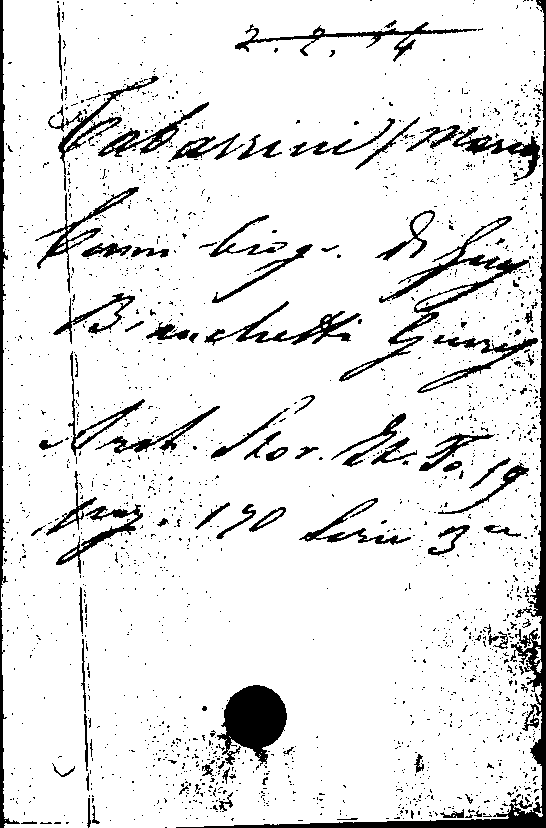 2. 2. 14
Tabarrini / Marco
Cenni biog. di Giu
Bianchetti Giusep
Arch. Stor. It. To. 19
pag. 170 Serie 3a